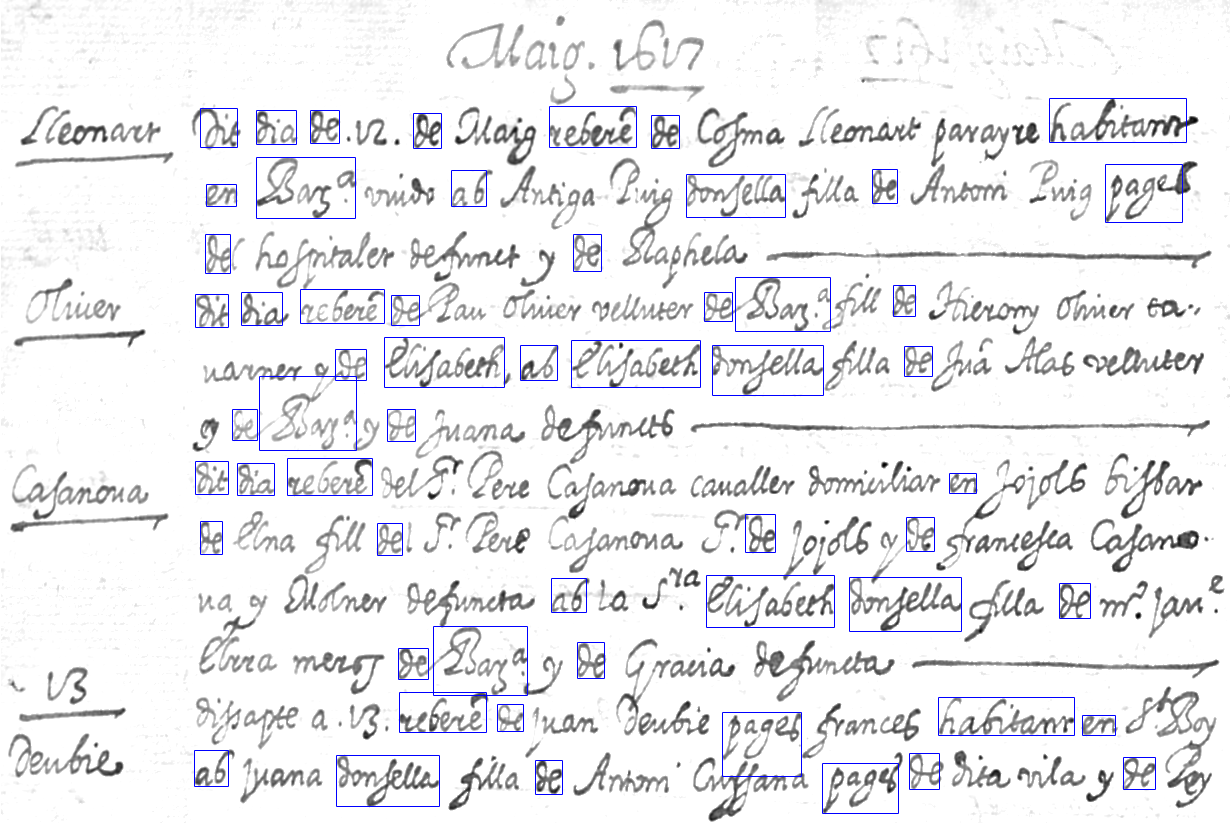 Maig. 1617
Lleonart
Dit dia de .12. de Maig reberẽ de Cosma Lleonart parayre habitant
en Bar^a viudo ab Antiga Puig donsella filla de Antoni Puig pages
del hospitalet defunct y de Raphela
Oliver
dit dia reberẽ de Pau Oliver velluter de Bar^a fill de Hierony Oliver ta-
varner y de Elisabeth, ab Elisabeth donsella filla de Juã Alas velluter
y de Bar^a y de Juana defuncts
Casanova
dit dia reberẽ del S^r. Pere Casanova cavaller domiciliat en Jojols bisbat
de Elna fill del S^r. Pere Casanova S^r. de Jojols y de francesca Casano-
va y Molner defuncta ab la S^ra. Elisabeth donsella filla de m^o. Jau^e.
merg de Bar^a y de Gracia defuncta
13
Deubie
dissapte a .13. reberẽ de Juan Deubie pages frances habitant en S^t Boy
ab Juana donsella filla de Antoni Cussana pages de dita vila y de Pey